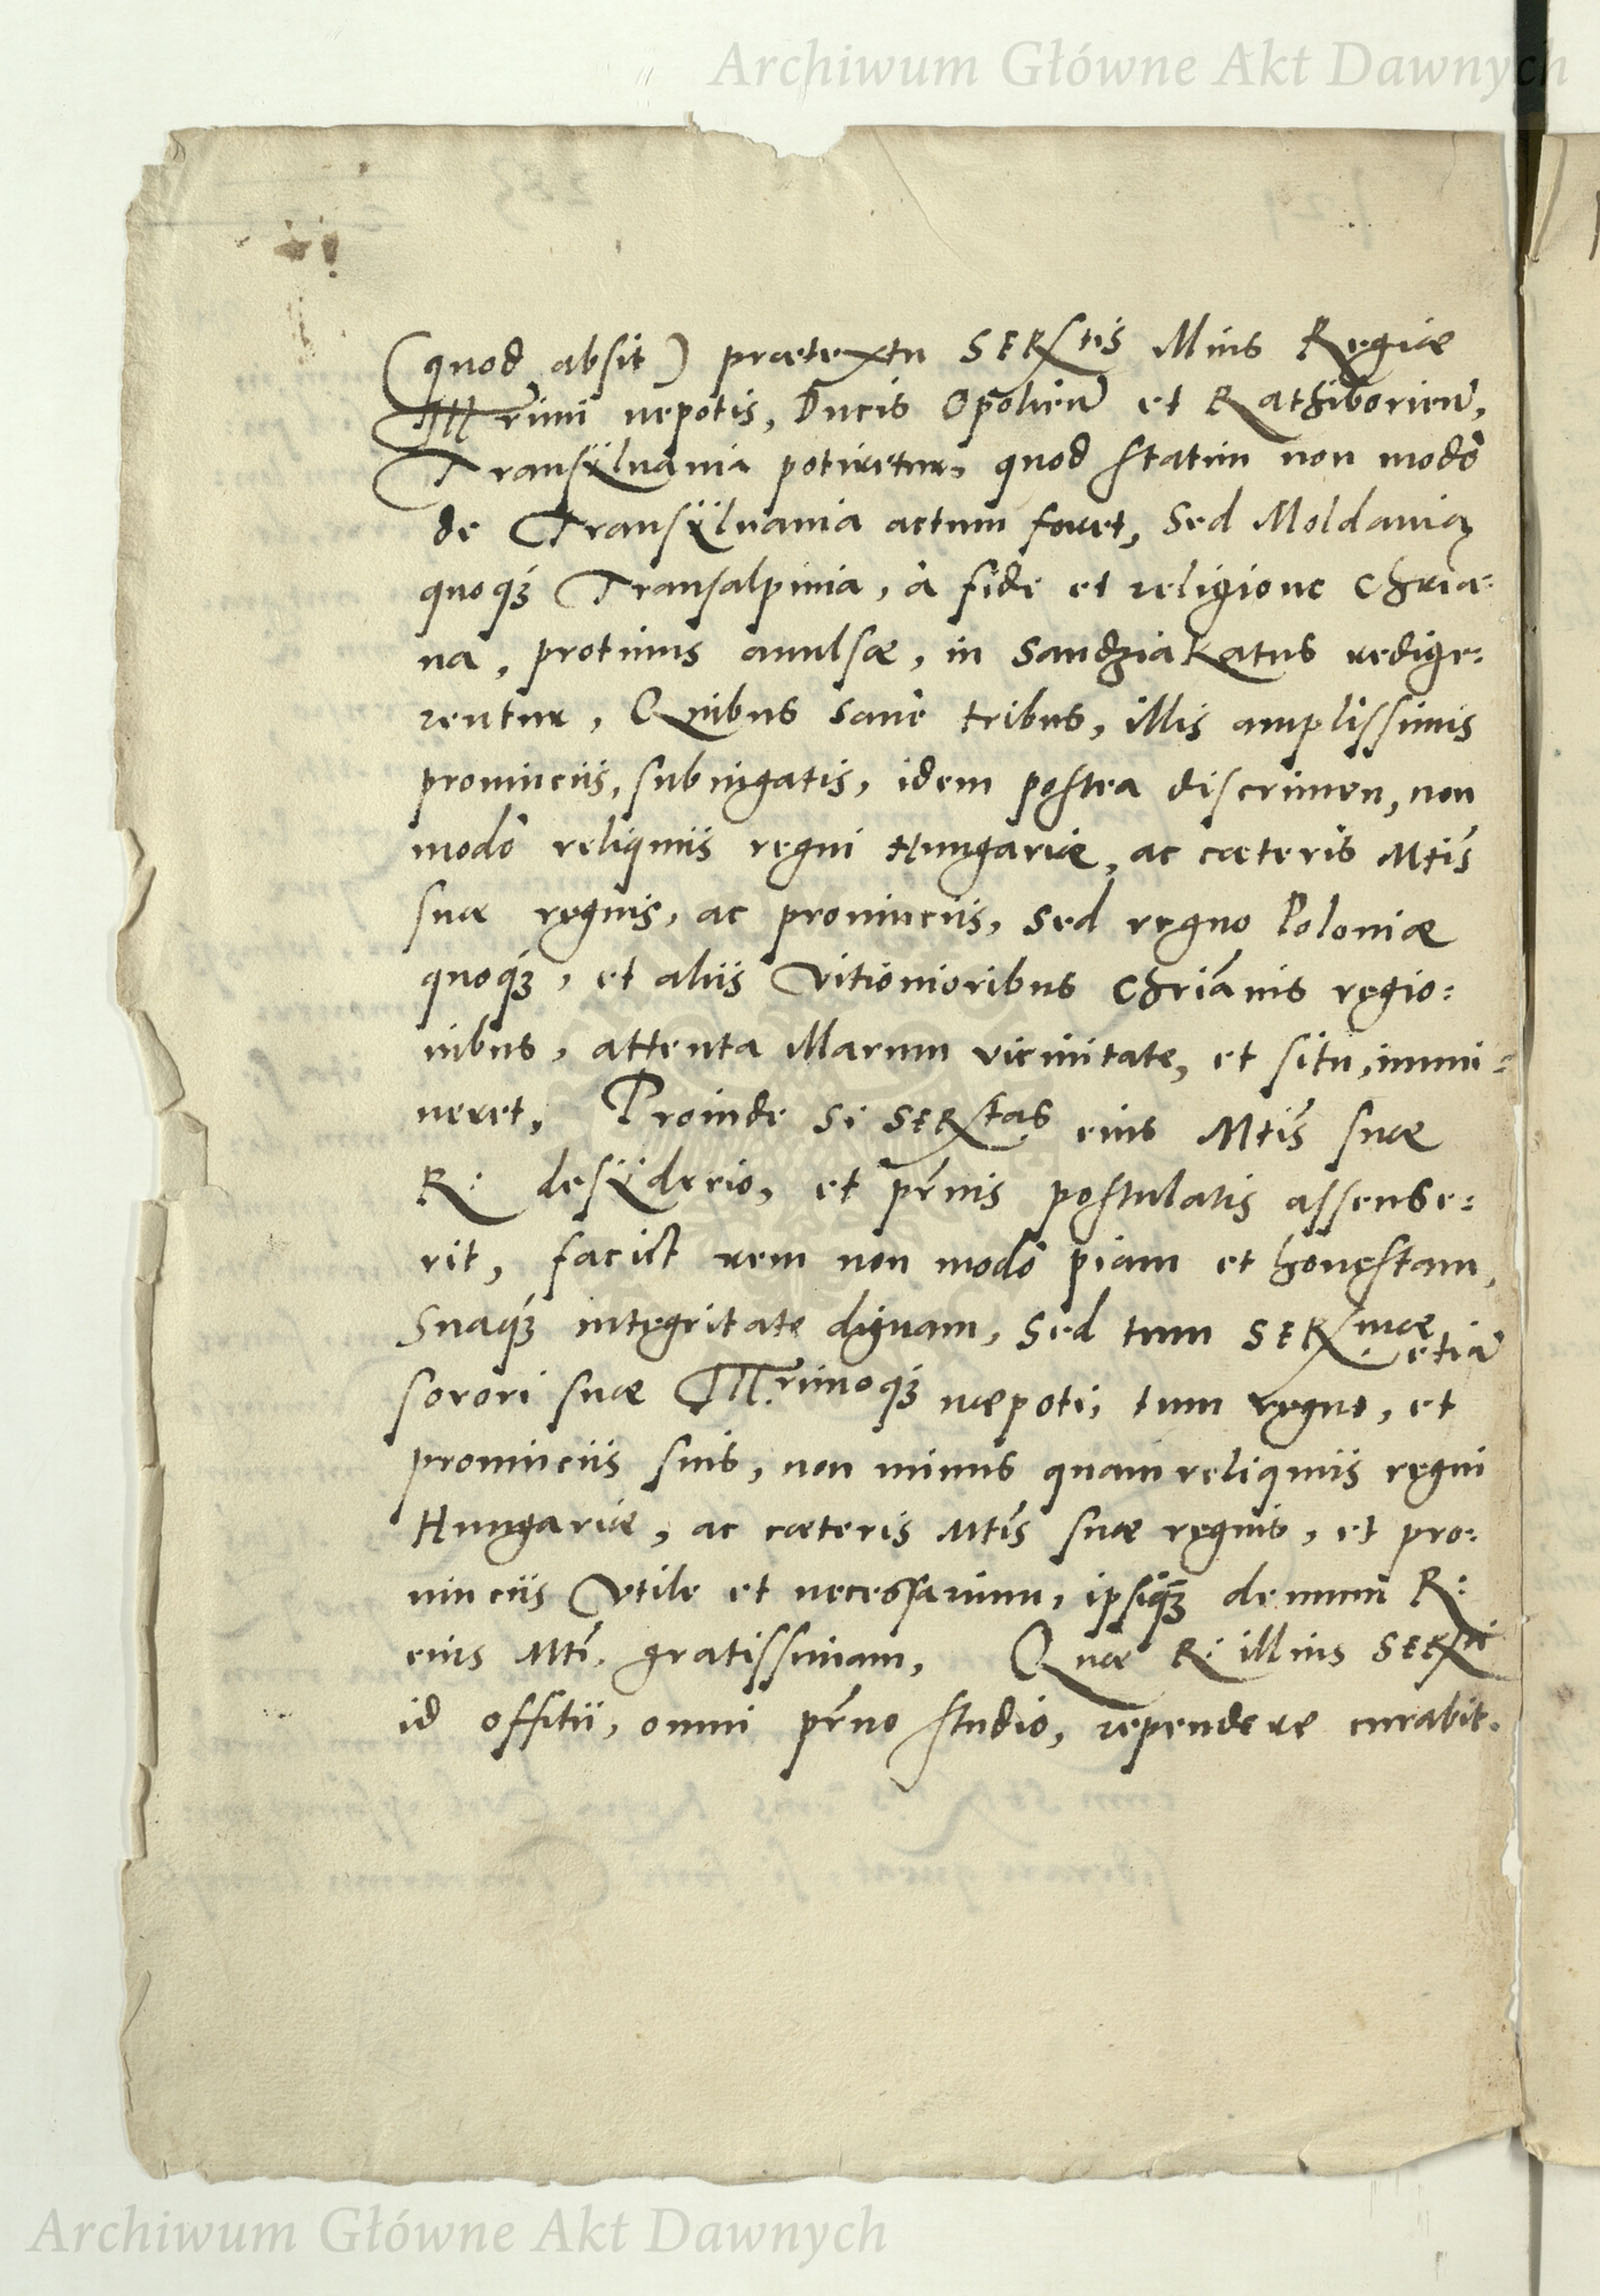 Archiwum Główne Akt Dawnych
(quod absit) prætextu SERtis Illius Regiæ
Illrimi nepotis, Ducis Opolien et Rathiborien,
Transÿluania potiretur, quod statim non modò
de Transÿluania actum foret, sed Moldauia
quoq́ȝ Transalpinia, à fide et religione Chria:
na, protinus auulsæ, in Sandziakatus redige:
rentur, Quibus sanè tribus, illis amplissimis
prouinciis, subiugatis, idem postea discrimen, non
modò reliquiis regni Hungariæ, ac cæteris Mtis
suæ regnis, ac prouinciis, sed regno Poloniæ
quoq́ȝ, et aliis vitionioribus Chriānis regio:
nibus, attenta illarum vicinitate, et situ, immi:
neret, Proinde si SERtas eius Mtis suæ
R: desÿderio, et pr̄nis postulatis assense:
rit, faciet rem non modò piam et honestam,
Suaq́ȝ integritate dignam, sed tum SERmæ etiā
sorori suæ Illrimoqȝ næpoti, tum regno, et
prouinciis suis, non minus quam reliquiis regni
Hungariæ, ac cæteris Mtis suæ regnis, et pro:
uinciis vtile et necessarium, ipsiqȝ demum R:
eius Mti gratissimam, Quæ R: illius SERti
id offitii, omni pr̄no studio, rependere curabit.
Archiwum Główne Akt Dawnych